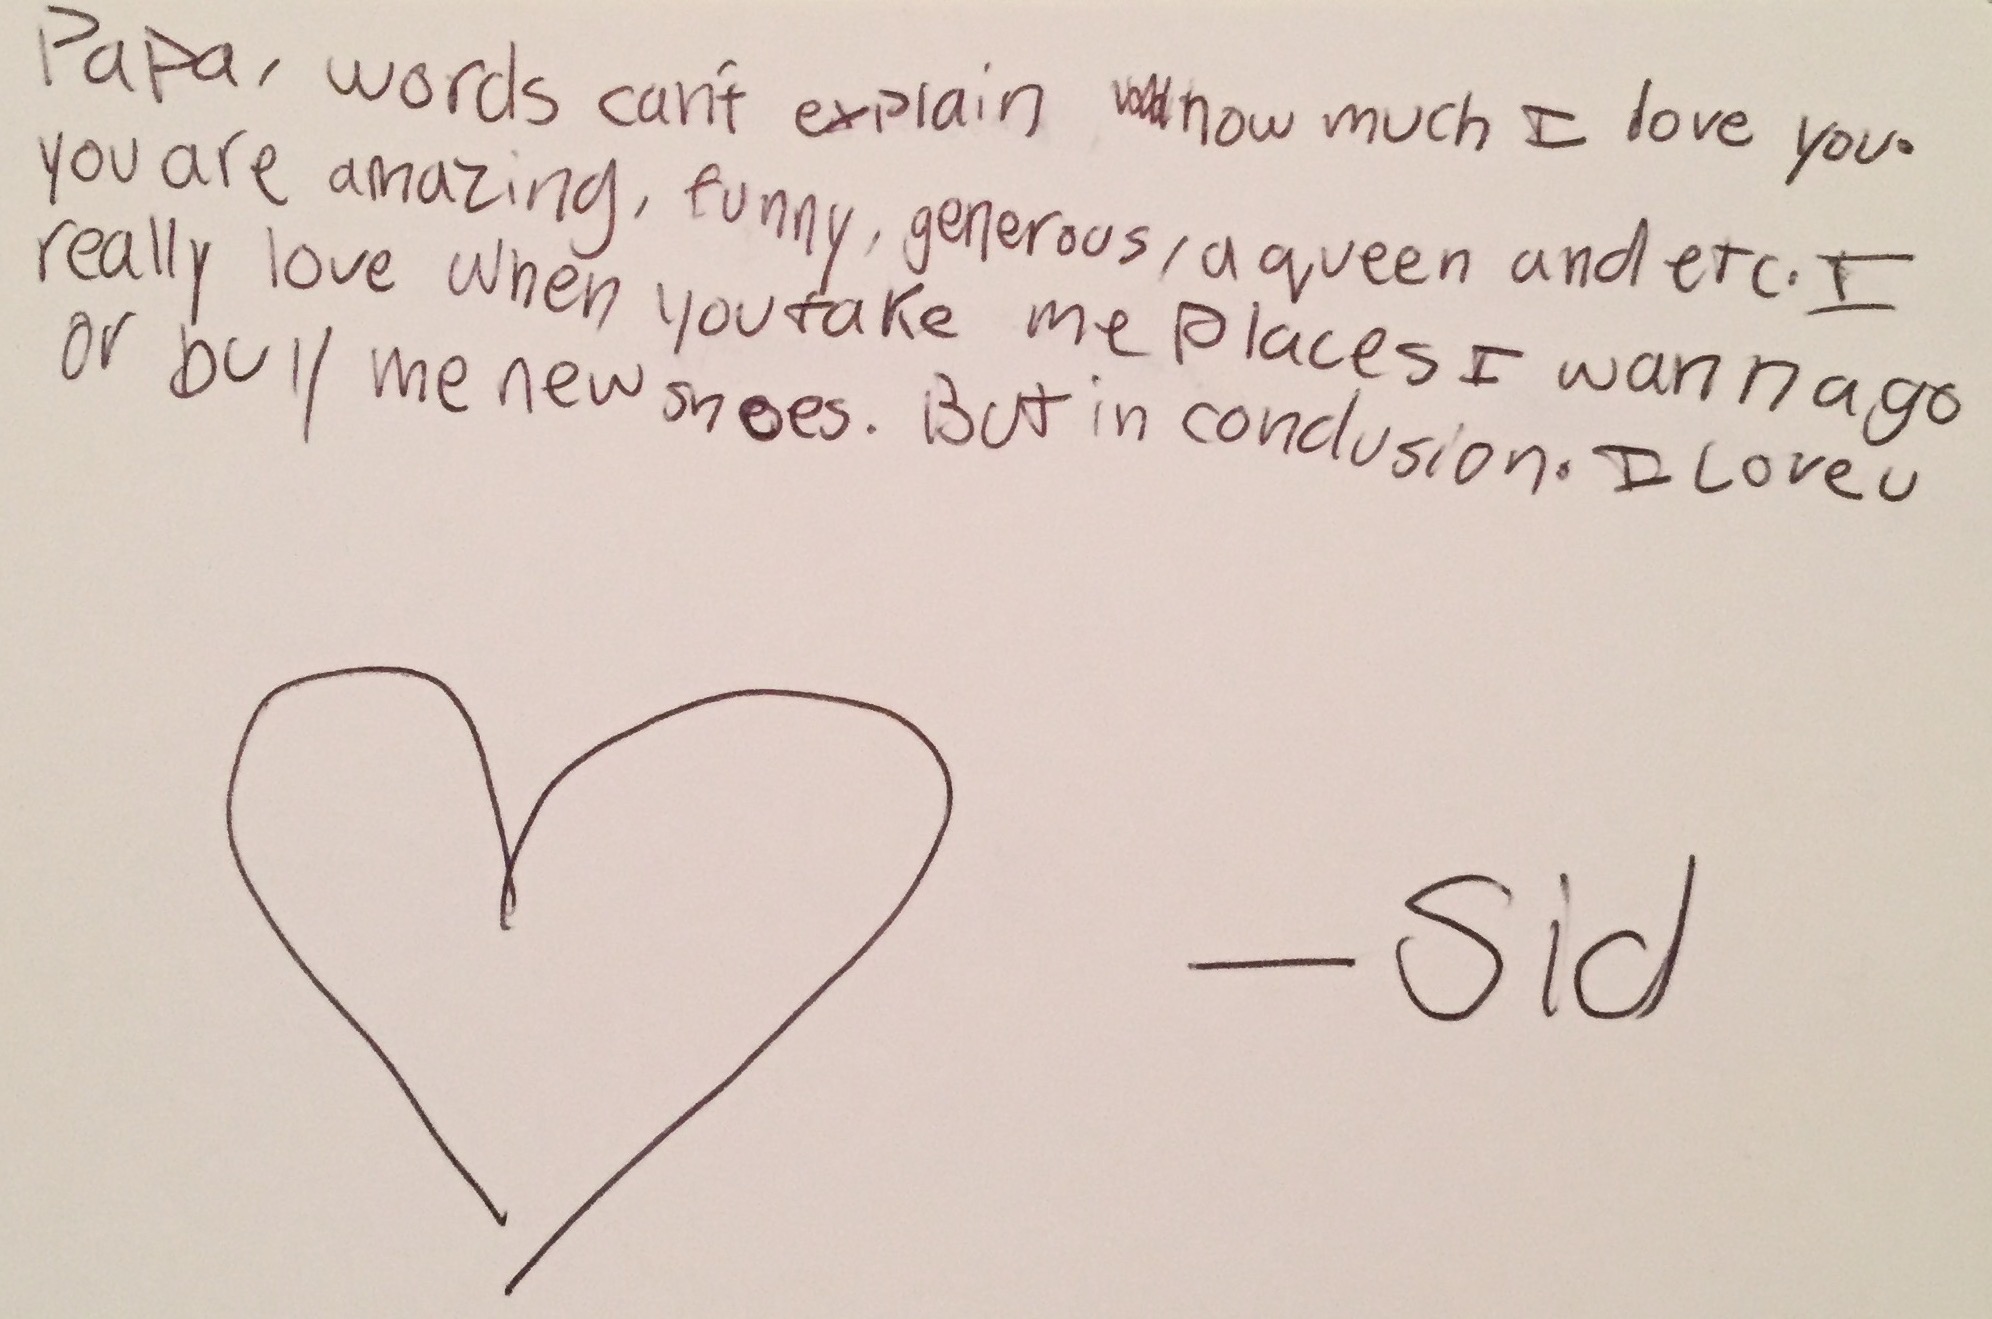 Papa, words can't explain how much I love you.
you are amazing, funny, generous, a queen and etc. I
really love when you take me places I wanna go
or buy me new shoes. But in conclusion. I Love u
— Sid